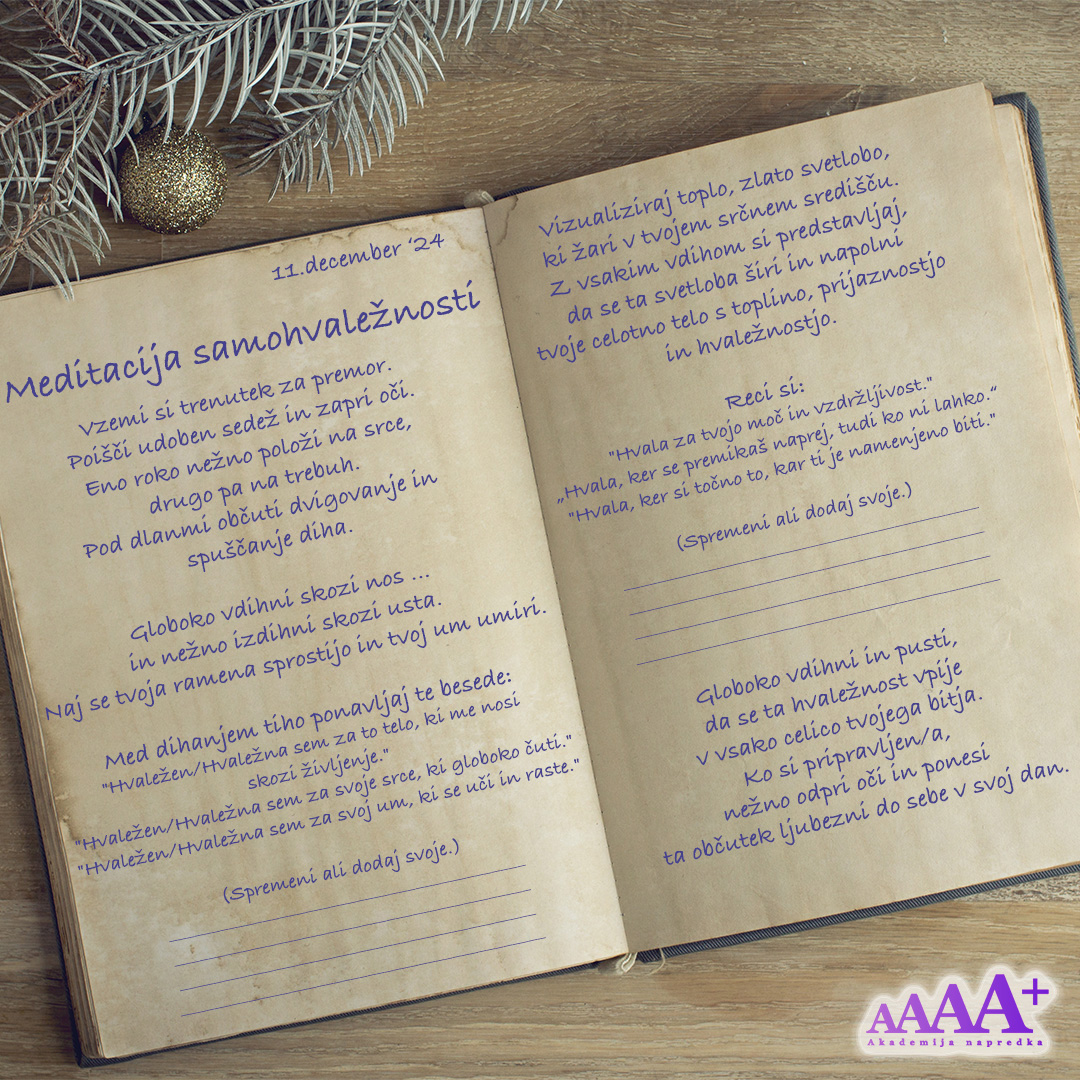 11.december ‘24
Meditacija samohvaležnosti
Vzemi si trenutek za premor.
Poišči udoben sedež in zapri oči.
Eno roko nežno položi na srce,
drugo pa na trebuh.
Pod dlanmi občuti dvigovanje in
spuščanje diha.
Globoko vdihni skozi nos ...
in nežno izdihni skozi usta.
Naj se tvoja ramena sprostijo in tvoj um umiri.
Med dihanjem tiho ponavljaj te besede:
"Hvaležen/Hvaležna sem za to telo, ki me nosi
skozi življenje."
"Hvaležen/Hvaležna sem za svoje srce, ki globoko čuti."
"Hvaležen/Hvaležna sem za svoj um, ki se uči in raste."
(Spremeni ali dodaj svoje.)
Vizualiziraj toplo, zlato svetlobo,
ki žari v tvojem srčnem središču.
Z vsakim vdihom si predstavljaj,
da se ta svetloba širi in napolni
tvoje celotno telo s toplino, prijaznostjo
in hvaležnostjo.
Reci si:
"Hvala za tvojo moč in vzdržljivost."
„Hvala, ker se premikaš naprej, tudi ko ni lahko.“
"Hvala, ker si točno to, kar ti je namenjeno biti."
(Spremeni ali dodaj svoje.)
Globoko vdihni in pusti,
da se ta hvaležnost vpije
v vsako celico tvojega bitja.
Ko si pripravljen/a,
nežno odpri oči in ponesi
ta občutek ljubezni do sebe v svoj dan.
AAAA+
Akademija napredka